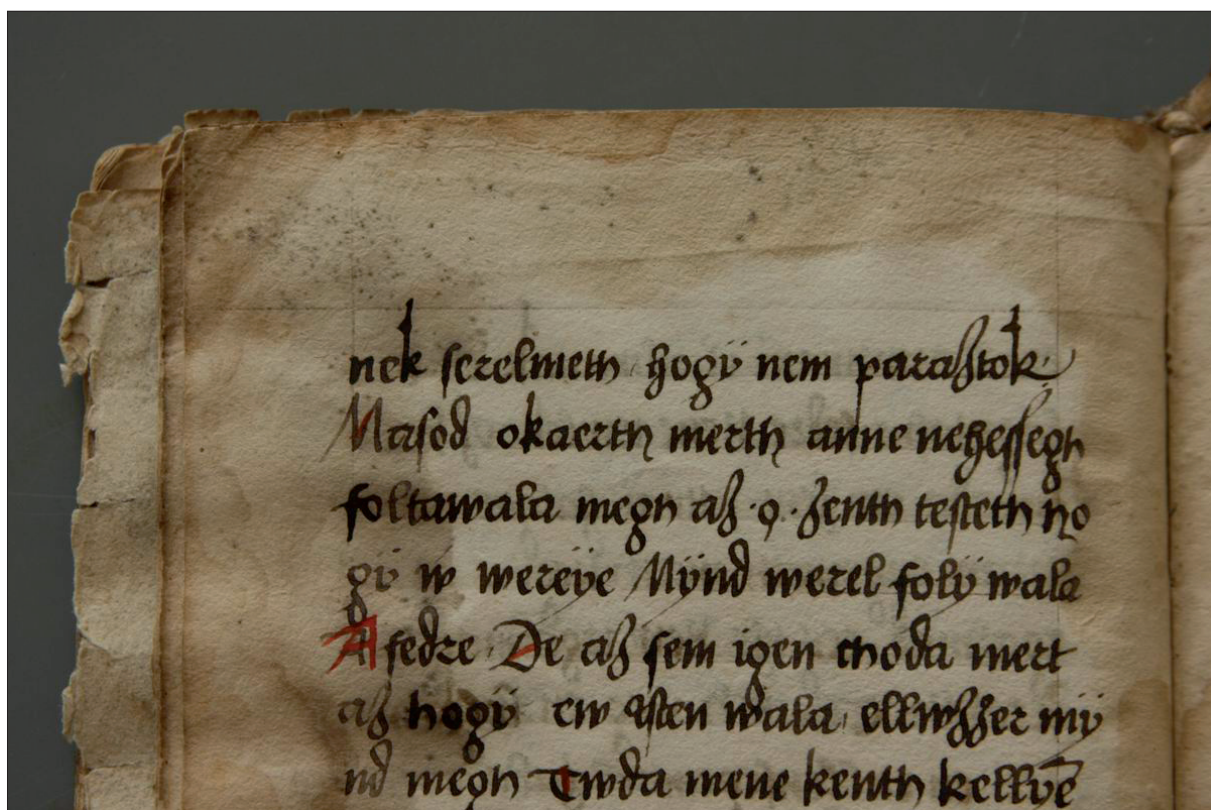 nek serelmeth hogÿ nem paraʒtok
Masod okaerth merth anne neheſſegh
foltawala megh aʒ ·9· ʒenth teſteth ho
gÿ w wereÿe Mÿnd werel folÿ wala
A fedre De aʒ sem igen choda mert
aʒ hogÿ ew iſten wala ellwʒʒer mÿ
nd megh Twda mene kenth kellvē